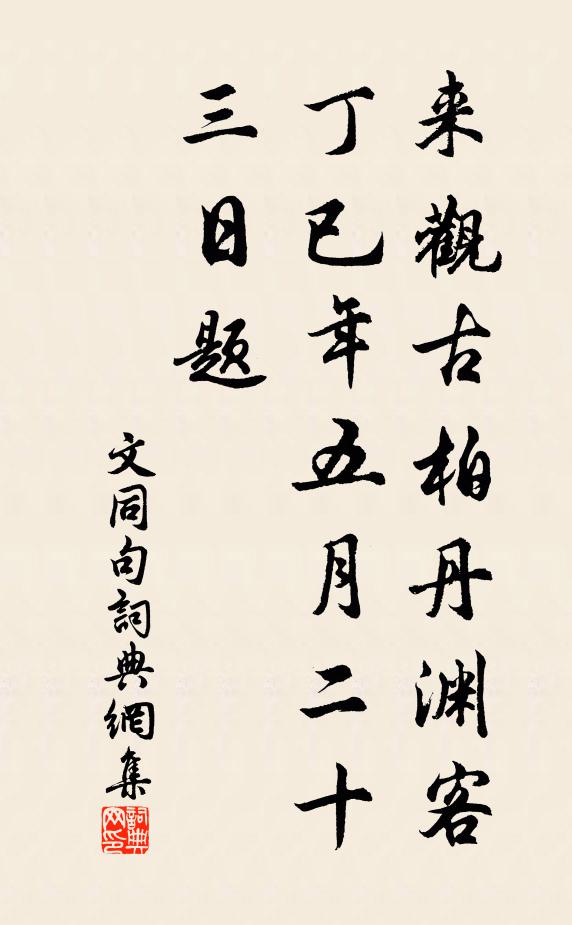 来觀古柏丹渊客
丁巳年五月二十
三日题
文同句詞典網集
詞典
网印